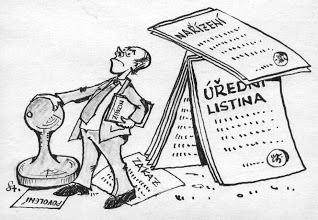 NAŘÍZENÍ
ÚŘEDNÍ
LISTINA
ZÁKAZ
POVOLENÍ